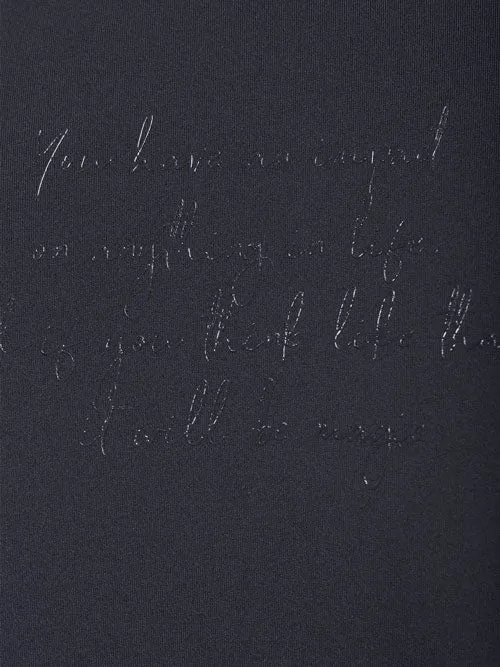 You have an impact
on anything in life.
if you think like tha
it will be magic